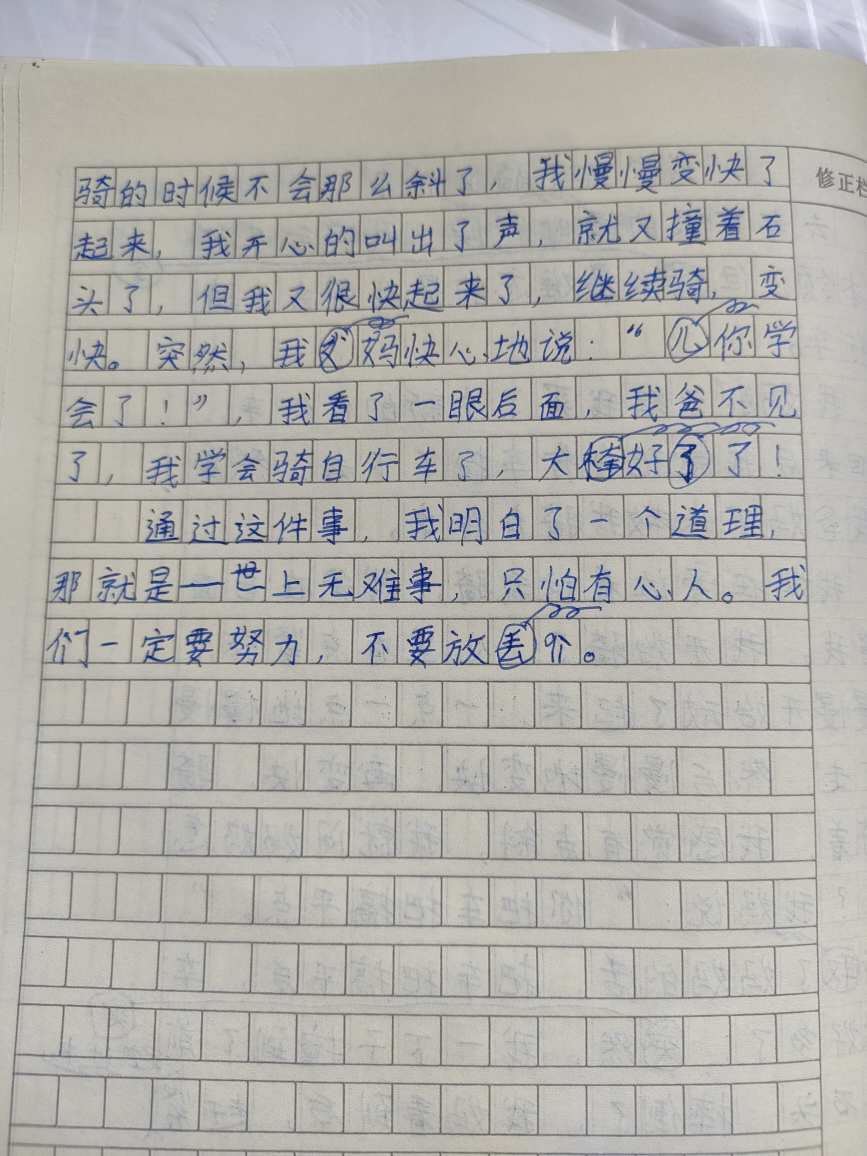 骑的时候不会那么斜了，我慢慢变快了
修正栏
起来，我开心的叫出了声，就又撞着石
头了，但我又很快起来了，继续骑，变
快。突然，我妈快心地说：“你学
会了！”，我看了一眼后面，我爸不见
了，我学会骑自行车了，大好了！
通过这件事，我明白了一个道理，
那就是—世上无难事，只怕有心人。我
们一定要努力，不要放弃。